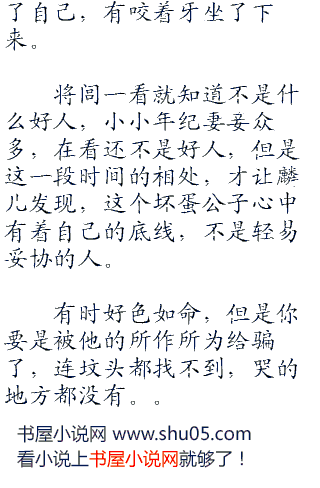 了自己，有咬着牙坐了下
来。
将闾一看就知道不是什
么好人，小小年纪妻妾众
多，在看还不是好人，但是
这一段时间的相处，才让麟
儿发现，这个坏蛋公子心中
有着自己的底线，不是轻易
妥协的人。
有时好色如命，但是你
要是被他的所作所为给骗
了，连坟头都找不到，哭的
地方都没有。。
书屋小说网 www.shu05.com
看小说上书屋小说网就够了！